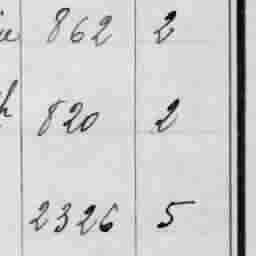 862 2
820 2
2326 5